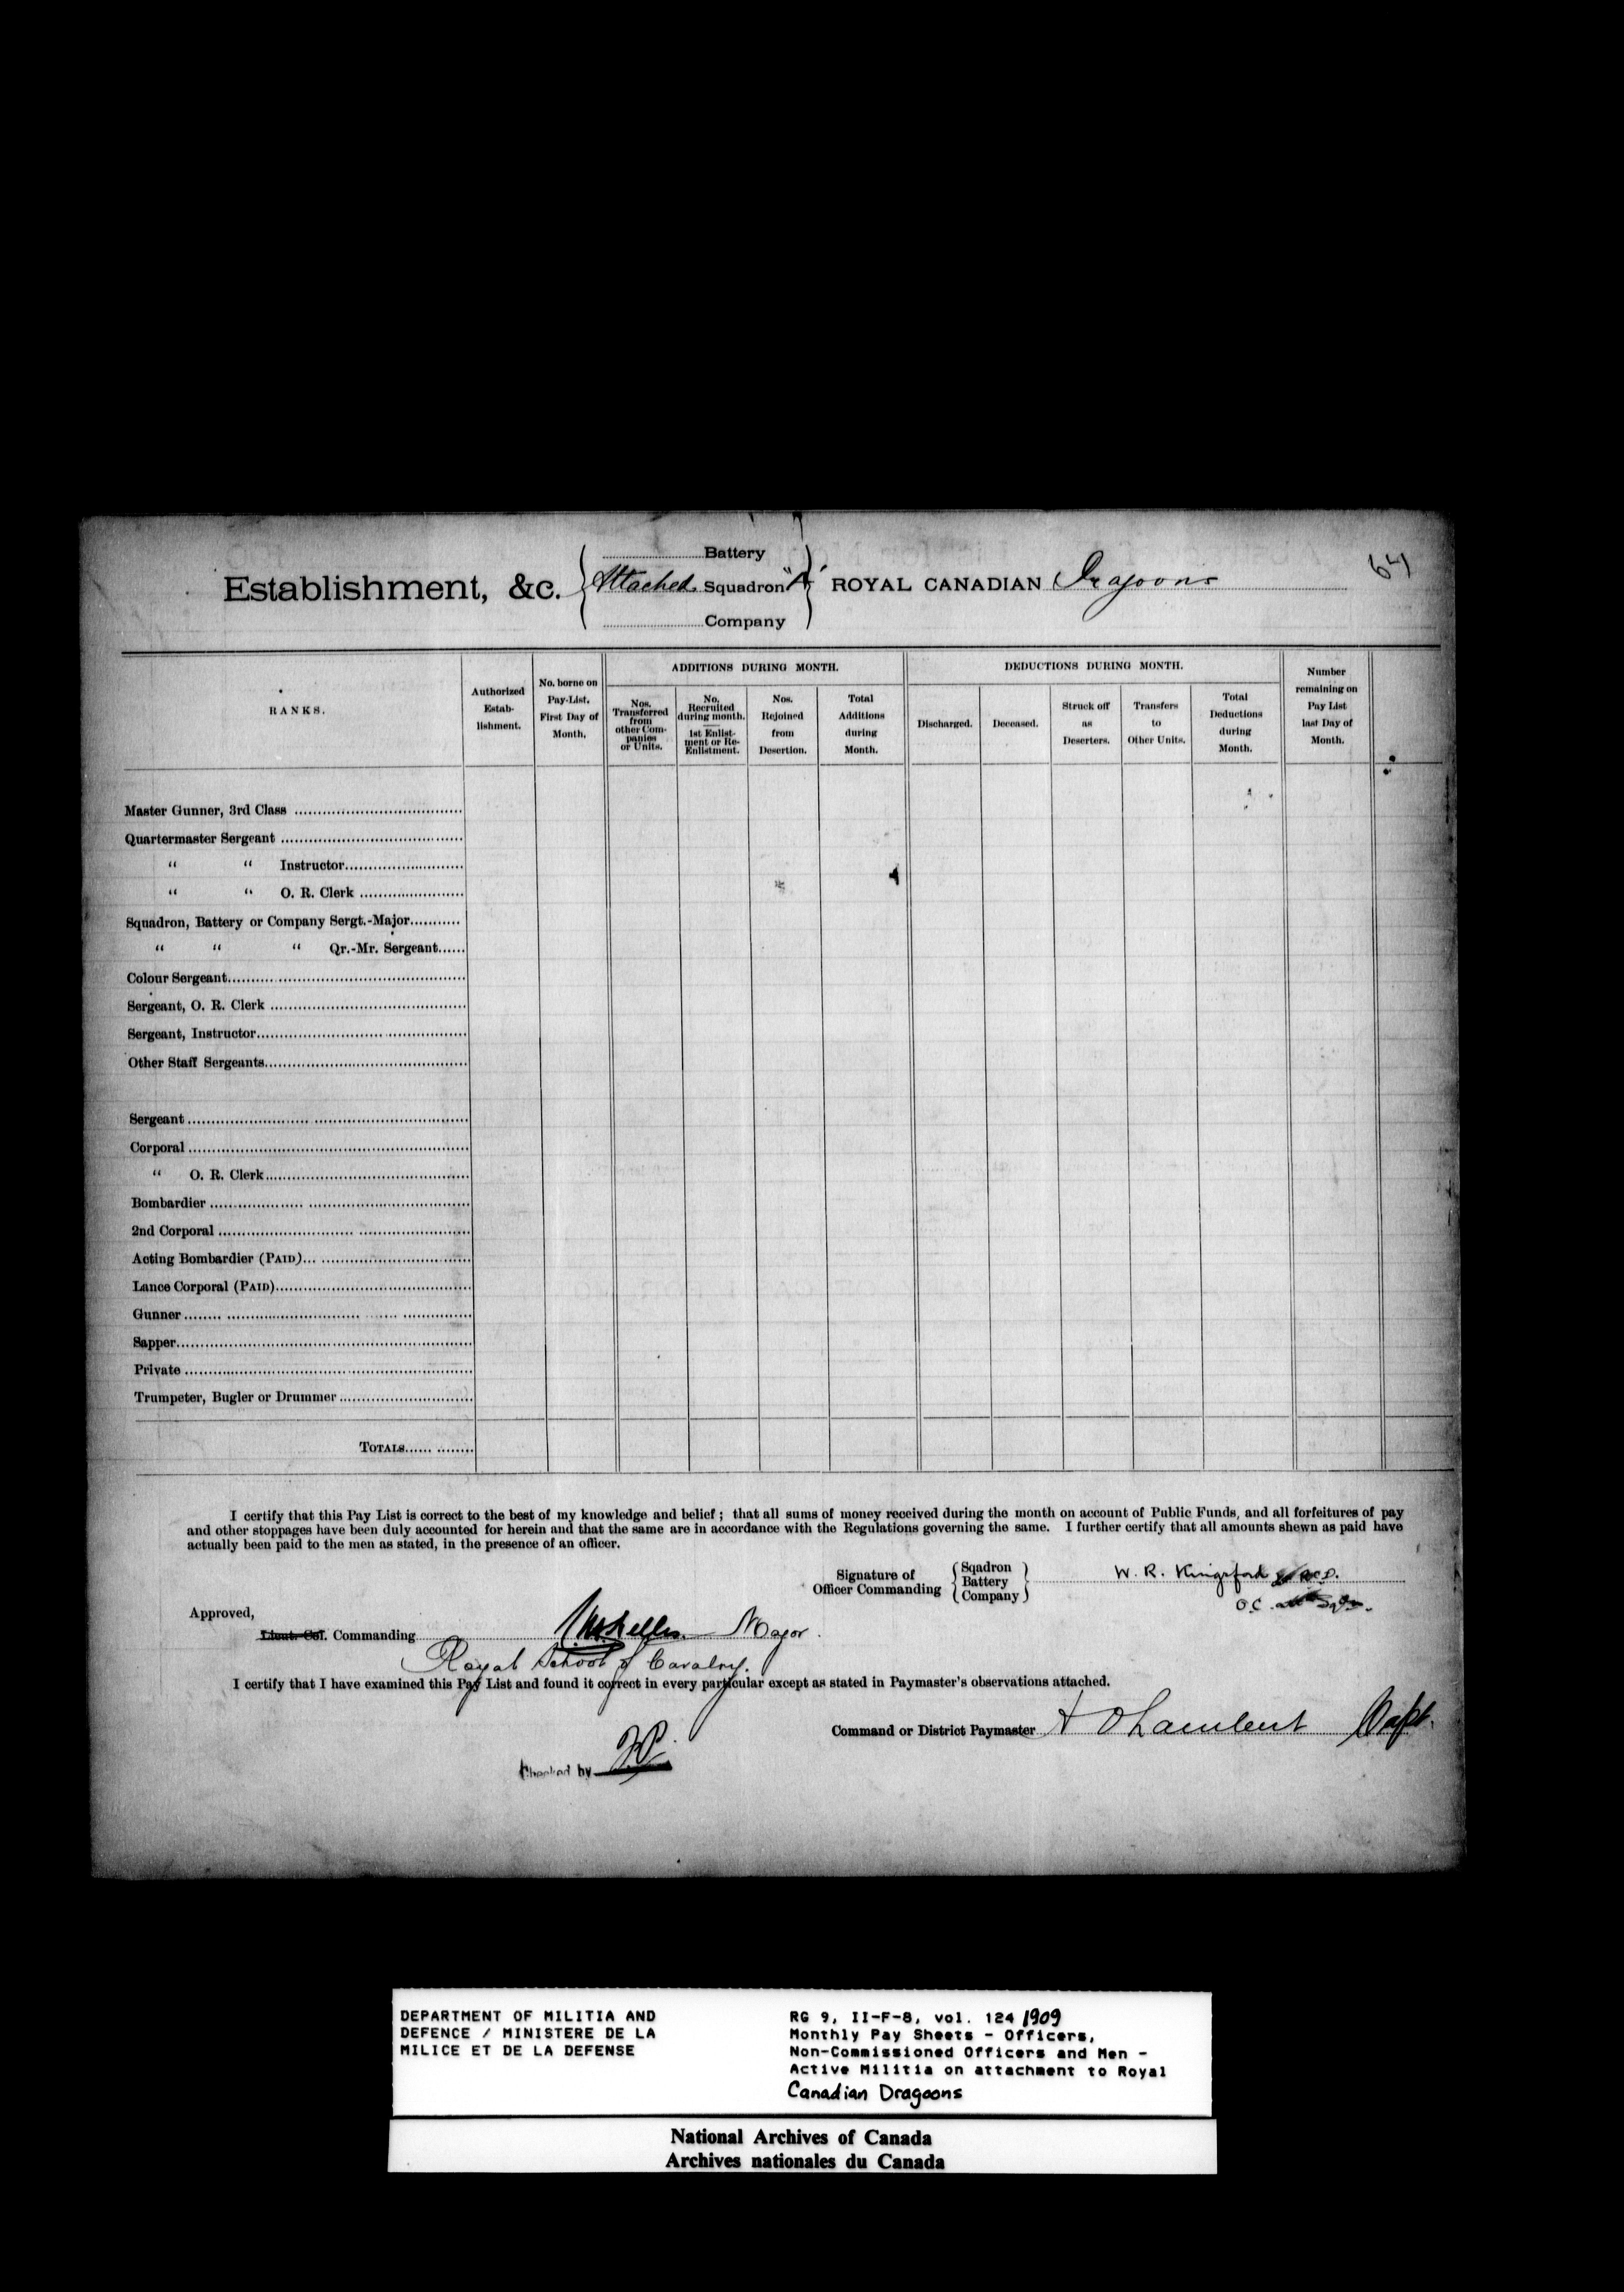 64
Battery
Establishment, &c. Attached Squadron "A" ROYAL CANADIAN Dragoons
Company
RANKS.
Authorized Estab-lishment.
No. borne on Pay-List. First Day of Month.
ADDITIONS DURING MONTH.
Nos. Transferred from other Com-panies or Units.
No. Recruited during month. 1st Enlist-ment or Re-Enlistment.
Nos. Rejoined from Desertion.
Total Additions during Month.
DEDUCTIONS DURING MONTH.
Discharged.
Deceased.
Struck off as Deserters.
Transfers to Other Units.
Total Deductions during Month.
Number remaining on Pay List last Day of Month.
Master Gunner, 3rd Class
Quartermaster Sergeant
“ “ Instructor
“ “ O. R. Clerk
Squadron, Battery or Company Sergt.-Major
“ “ “ Qr.-Mr. Sergeant
Colour Sergeant
Sergeant, O. R. Clerk
Sergeant, Instructor
Other Staff Sergeants
Sergeant
Corporal
“ O. R. Clerk
Bombardier
2nd Corporal
Acting Bombardier (PAID)
Lance Corporal (PAID)
Gunner
Sapper
Private
Trumpeter, Bugler or Drummer
TOTALS
I certify that this Pay List is correct to the best of my knowledge and belief; that all sums of money received during the month on account of Public Funds, and all forfeitures of pay
and other stoppages have been duly accounted for herein and that the same are in accordance with the Regulations governing the same. I further certify that all amounts shewn as paid have
actually been paid to the men as stated, in the presence of an officer.
Signature of Officer Commanding
Sqadron
Battery
Company
W. R. Kingsford
O.C.
Approved,
Lieut.-Col. Commanding Major
Royal School of Cavalry.
I certify that I have examined this Pay List and found it correct in every particular except as stated in Paymaster's observations attached.
Command or District Paymaster Lambert Capt.
Checked by
DEPARTMENT OF MILITIA AND
DEFENCE / MINISTERE DE LA
MILICE ET DE LA DEFENSE
RG 9, II-F-8, vol. 124 1909
Monthly Pay Sheets - Officers,
Non-Commissioned Officers and Men -
Active Militia on attachment to Royal
Canadian Dragoons
National Archives of Canada
Archives nationales du Canada